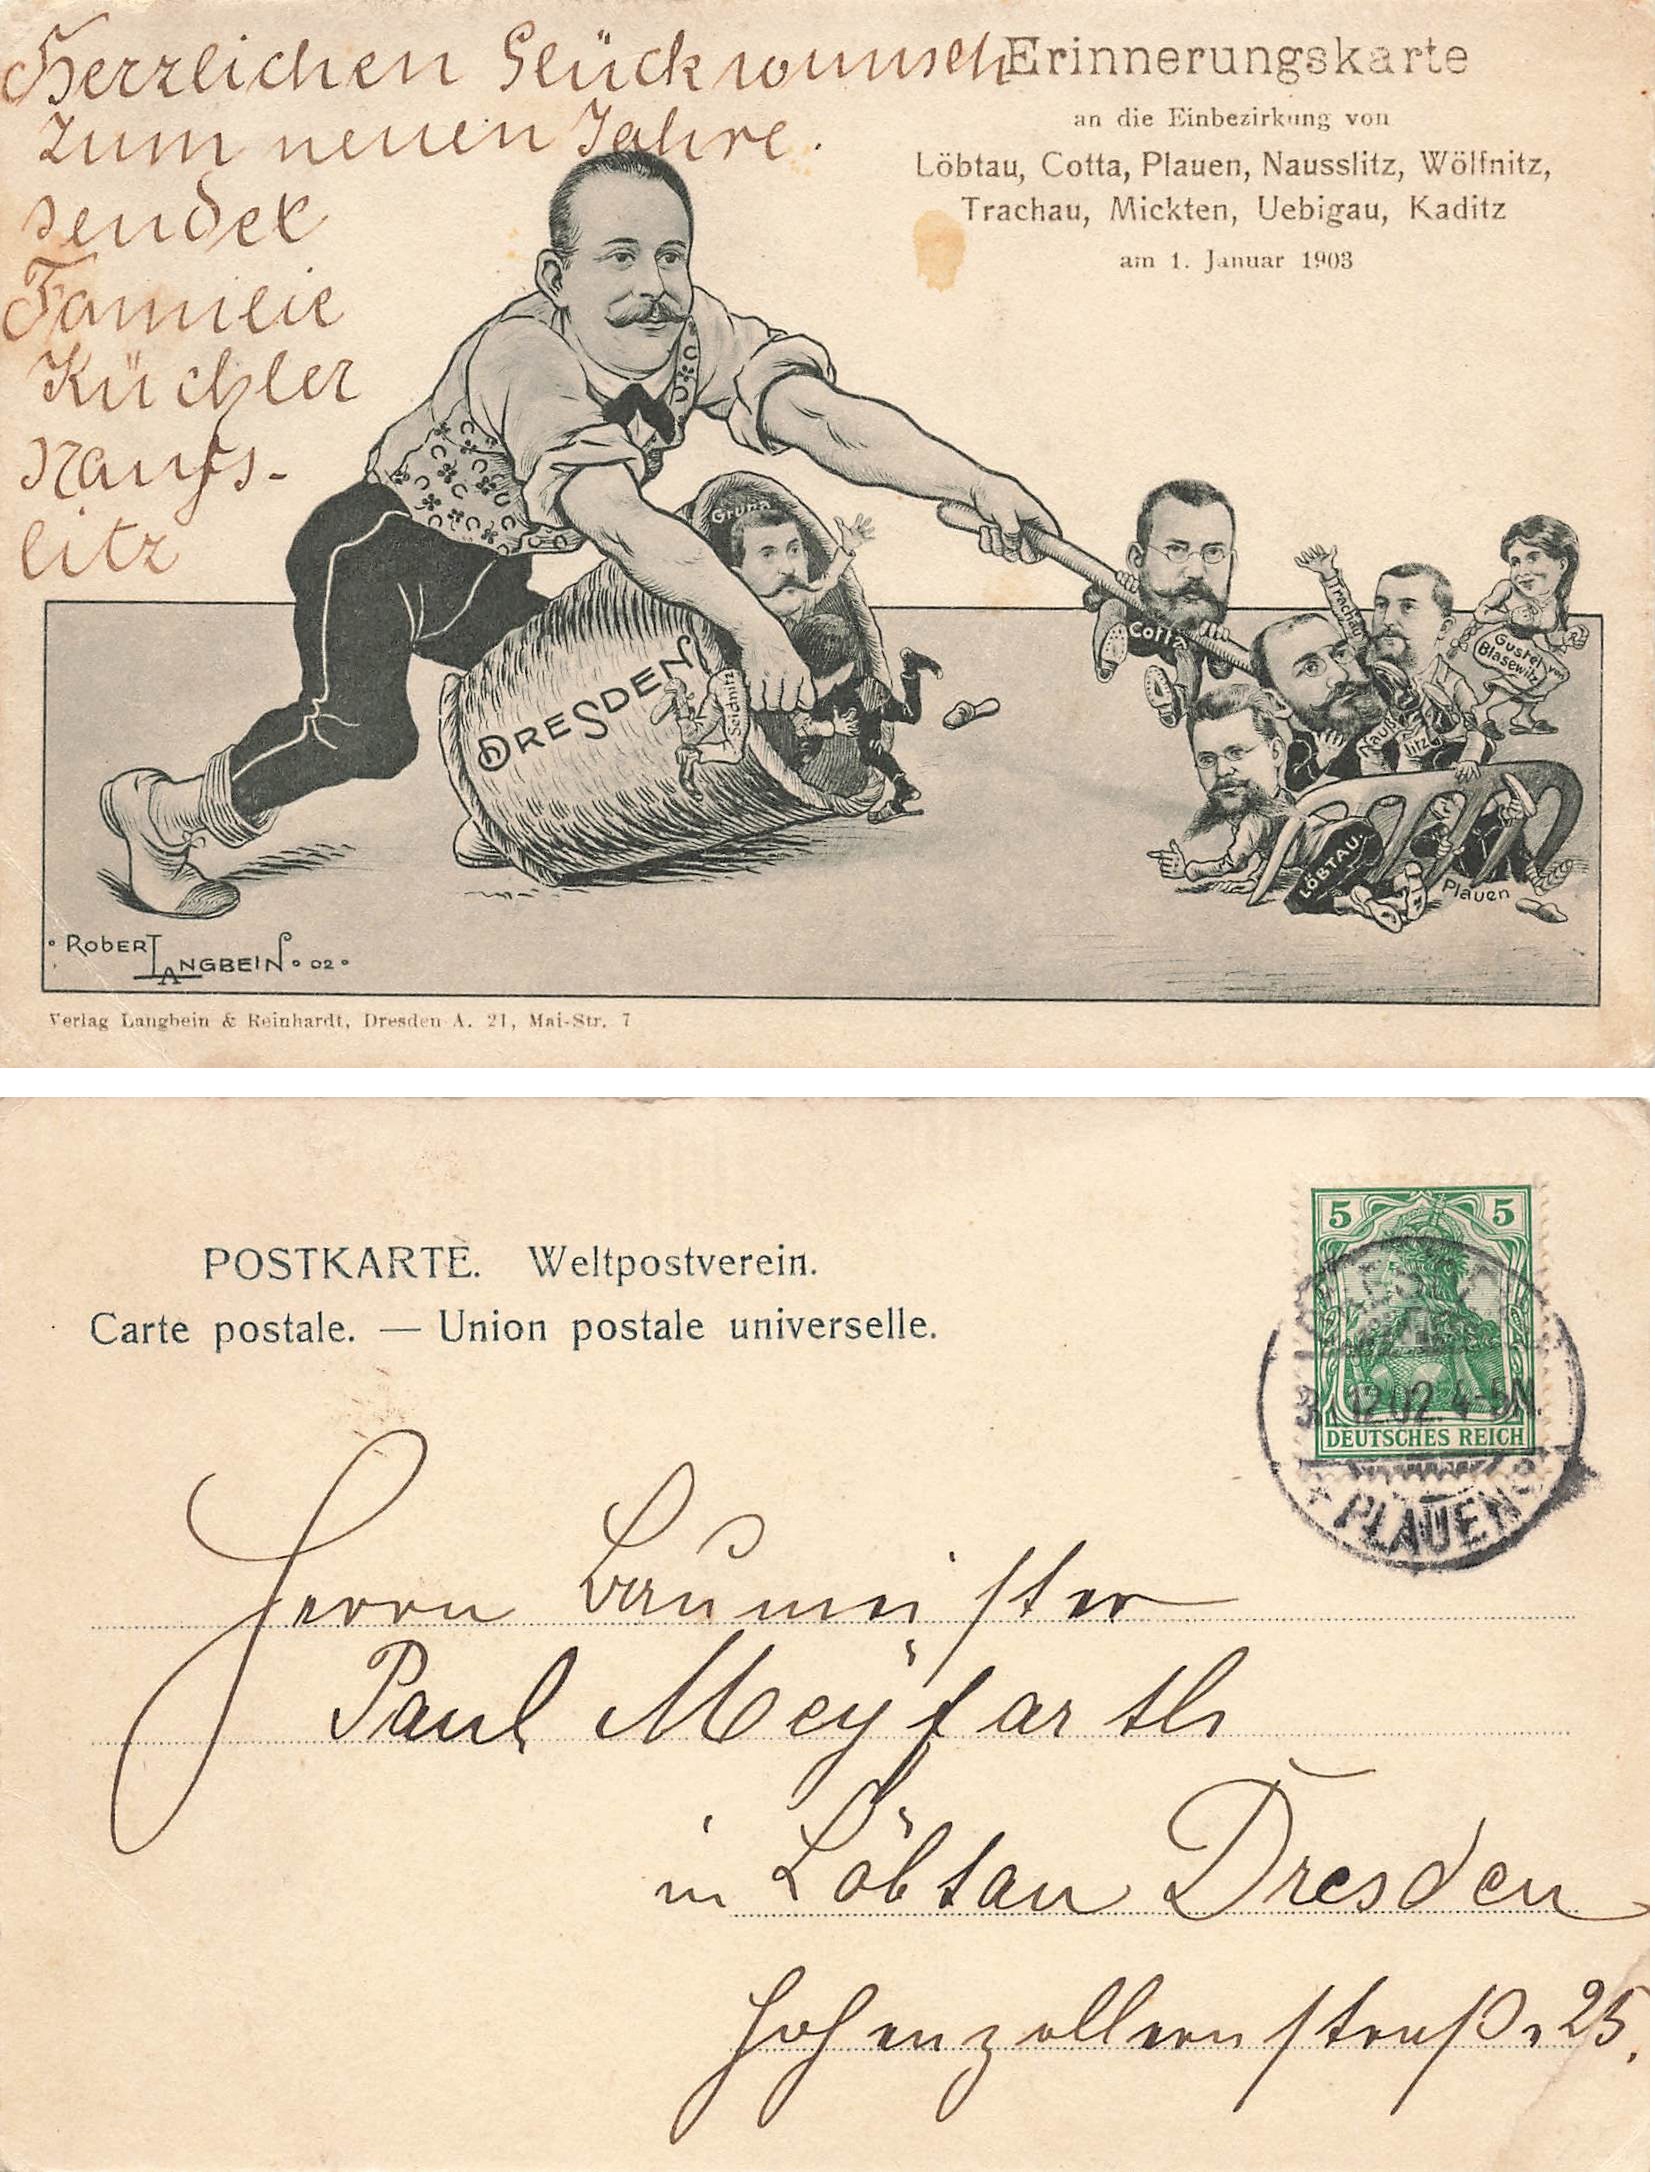 Herzlichen Glückwunsch
zum neuen Jahre.
sendet
Familie
Küchler
Nauss-
litz
Erinnerungskarte
an die Einbezirkung von
Löbtau, Cotta, Plauen, Nausslitz, Wölfnitz,
Trachau, Mickten, Uebigau, Kaditz
am 1. Januar 1903
Gruna
DRESDEN
Seidnitz
Cotta
Trachau
Gustel von
Blasewitz
Nauß
litz
LÖBTAU
Plauen
ROBERT
LANGBEIN 02
Verlag Langbein & Reinhardt, Dresden-A. 21, Mai-Str. 7
POSTKARTE. Weltpostverein.
Carte postale. — Union postale universelle.
5 5
31.12.02. 4-5N.
DEUTSCHES REICH
* PLAUEN
Herrn Baumeister
Paul Meyfarth
in Löbtau Dresden
Hohenzollernstraße 25.